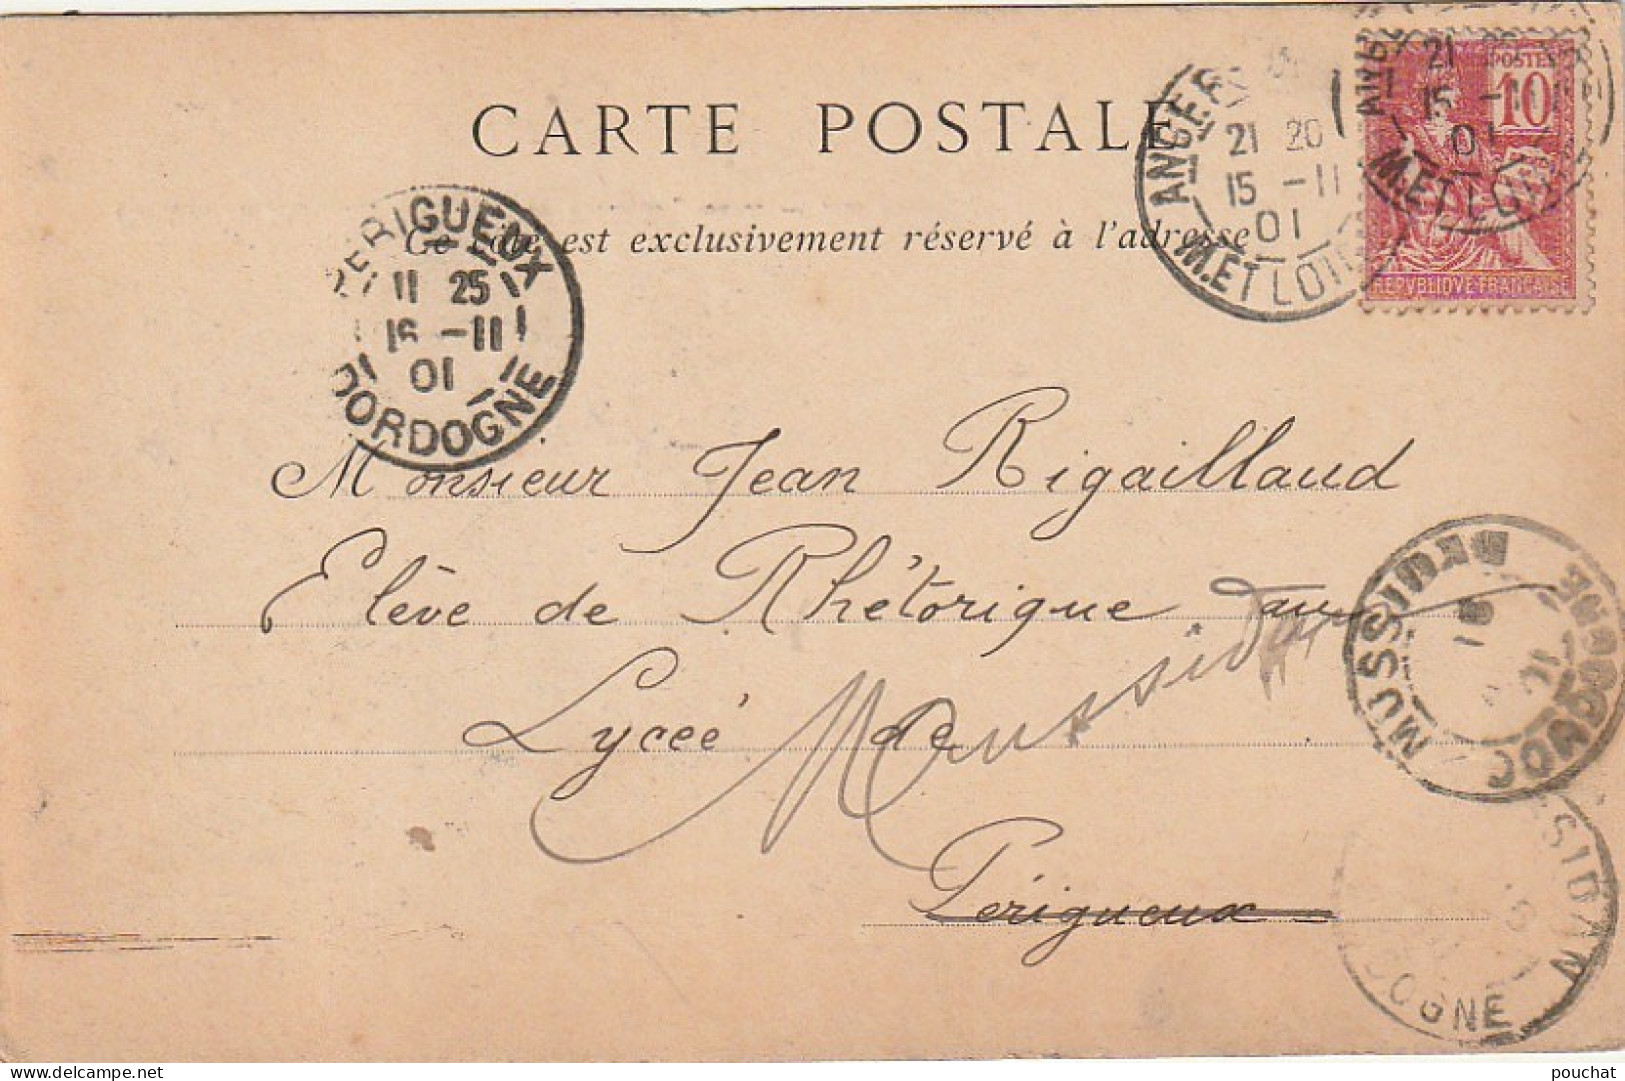 CARTE POSTALE
Ce côté est exclusivement réservé à l'adresse
ANGERS
21 20
15 -11
01
M.ET LOIRE
21
15 -11
01
M.ET LOIRE
POSTES
10
REPVBLIQVE FRANÇAISE
PERIGUEUX
11 25
16 -11
01
DORDOGNE
Monsieur Jean Rigaillaud
Elève de Rhétorique au
Lycée de
Mussidan
Périgueux
MUSSIDAN
DORDOGNE
SIDAN
DOGNE
pouchat
www.delcampe.net